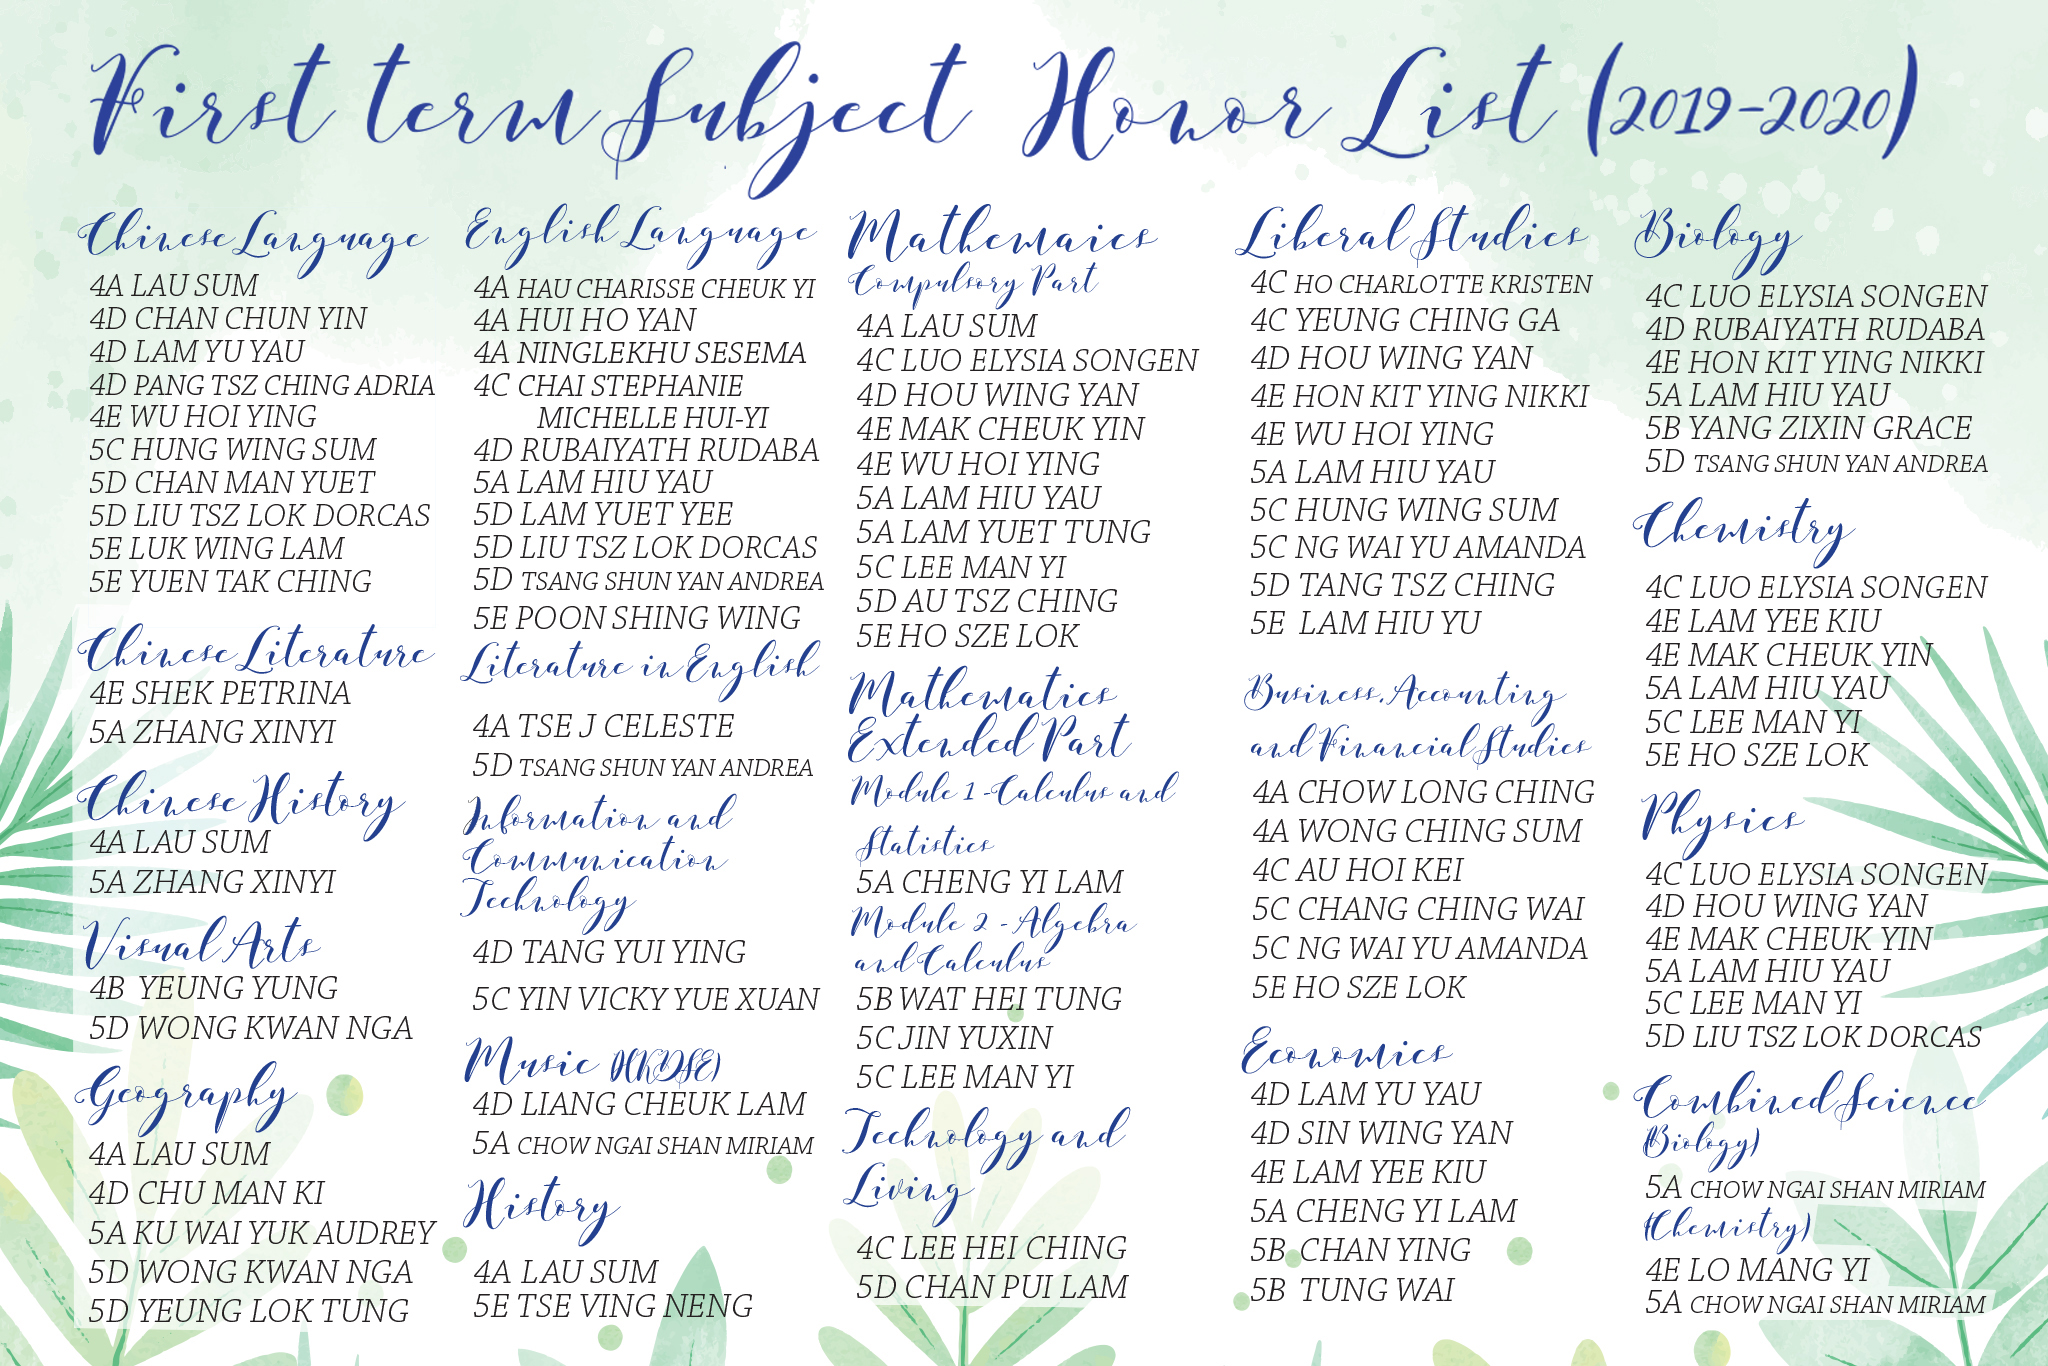 First term Subject Honor List (2019-2020)
Chinese Language
4A LAU SUM
4D CHAN CHUN YIN
4D LAM YU YAU
4D PANG TSZ CHING ADRIA
4E WU HOI YING
5C HUNG WING SUM
5D CHAN MAN YUET
5D LIU TSZ LOK DORCAS
5E LUK WING LAM
5E YUEN TAK CHING
Chinese Literature
4E SHEK PETRINA
5A ZHANG XINYI
Chinese History
4A LAU SUM
5A ZHANG XINYI
Visual Arts
4B YEUNG YUNG
5D WONG KWAN NGA
Geography
4A LAU SUM
4D CHU MAN KI
5A KU WAI YUK AUDREY
5D WONG KWAN NGA
5D YEUNG LOK TUNG
English Language
4A HAU CHARISSE CHEUK YI
4A HUI HO YAN
4A NINGLEKHU SESEMA
4C CHAI STEPHANIE
MICHELLE HUI-YI
4D RUBAIYATH RUDABA
5A LAM HIU YAU
5D LAM YUET YEE
5D LIU TSZ LOK DORCAS
5D TSANG SHUN YAN ANDREA
5E POON SHING WING
Literature in English
4A TSE J CELESTE
5D TSANG SHUN YAN ANDREA
Information and
Communication
Technology
4D TANG YUI YING
5C YIN VICKY YUE XUAN
Music (HKDSE)
4D LIANG CHEUK LAM
5A CHOW NGAI SHAN MIRIAM
History
4A LAU SUM
5E TSE VING NENG
Mathemaics
Compulsory Part
4A LAU SUM
4C LUO ELYSIA SONGEN
4D HOU WING YAN
4E MAK CHEUK YIN
4E WU HOI YING
5A LAM HIU YAU
5A LAM YUET TUNG
5C LEE MAN YI
5D AU TSZ CHING
5E HO SZE LOK
Mathematics
Extended Part
Module 1 -Calculus and
Statistics
5A CHENG YI LAM
Module 2 -Algebra
and Calculus
5B WAT HEI TUNG
5C JIN YUXIN
5C LEE MAN YI
Technology and
Living
4C LEE HEI CHING
5D CHAN PUI LAM
Liberal Studies
4C HO CHARLOTTE KRISTEN
4C YEUNG CHING GA
4D HOU WING YAN
4E HON KIT YING NIKKI
4E WU HOI YING
5A LAM HIU YAU
5C HUNG WING SUM
5C NG WAI YU AMANDA
5D TANG TSZ CHING
5E LAM HIU YU
Business.Accounting
and Financial Studies
4A CHOW LONG CHING
4A WONG CHING SUM
4C AU HOI KEI
5C CHANG CHING WAI
5C NG WAI YU AMANDA
5E HO SZE LOK
Economics
4D LAM YU YAU
4D SIN WING YAN
4E LAM YEE KIU
5A CHENG YI LAM
5B CHAN YING
5B TUNG WAI
Biology
4C LUO ELYSIA SONGEN
4D RUBAIYATH RUDABA
4E HON KIT YING NIKKI
5A LAM HIU YAU
5B YANG ZIXIN GRACE
5D TSANG SHUN YAN ANDREA
Chemistry
4C LUO ELYSIA SONGEN
4E LAM YEE KIU
4E MAK CHEUK YIN
5A LAM HIU YAU
5C LEE MAN YI
5E HO SZE LOK
Physics
4C LUO ELYSIA SONGEN
4D HOU WING YAN
4E MAK CHEUK YIN
5A LAM HIU YAU
5C LEE MAN YI
5D LIU TSZ LOK DORCAS
Combined Science
(Biology)
5A CHOW NGAI SHAN MIRIAM
(Chemistry)
4E LO MANG YI
5A CHOW NGAI SHAN MIRIAM